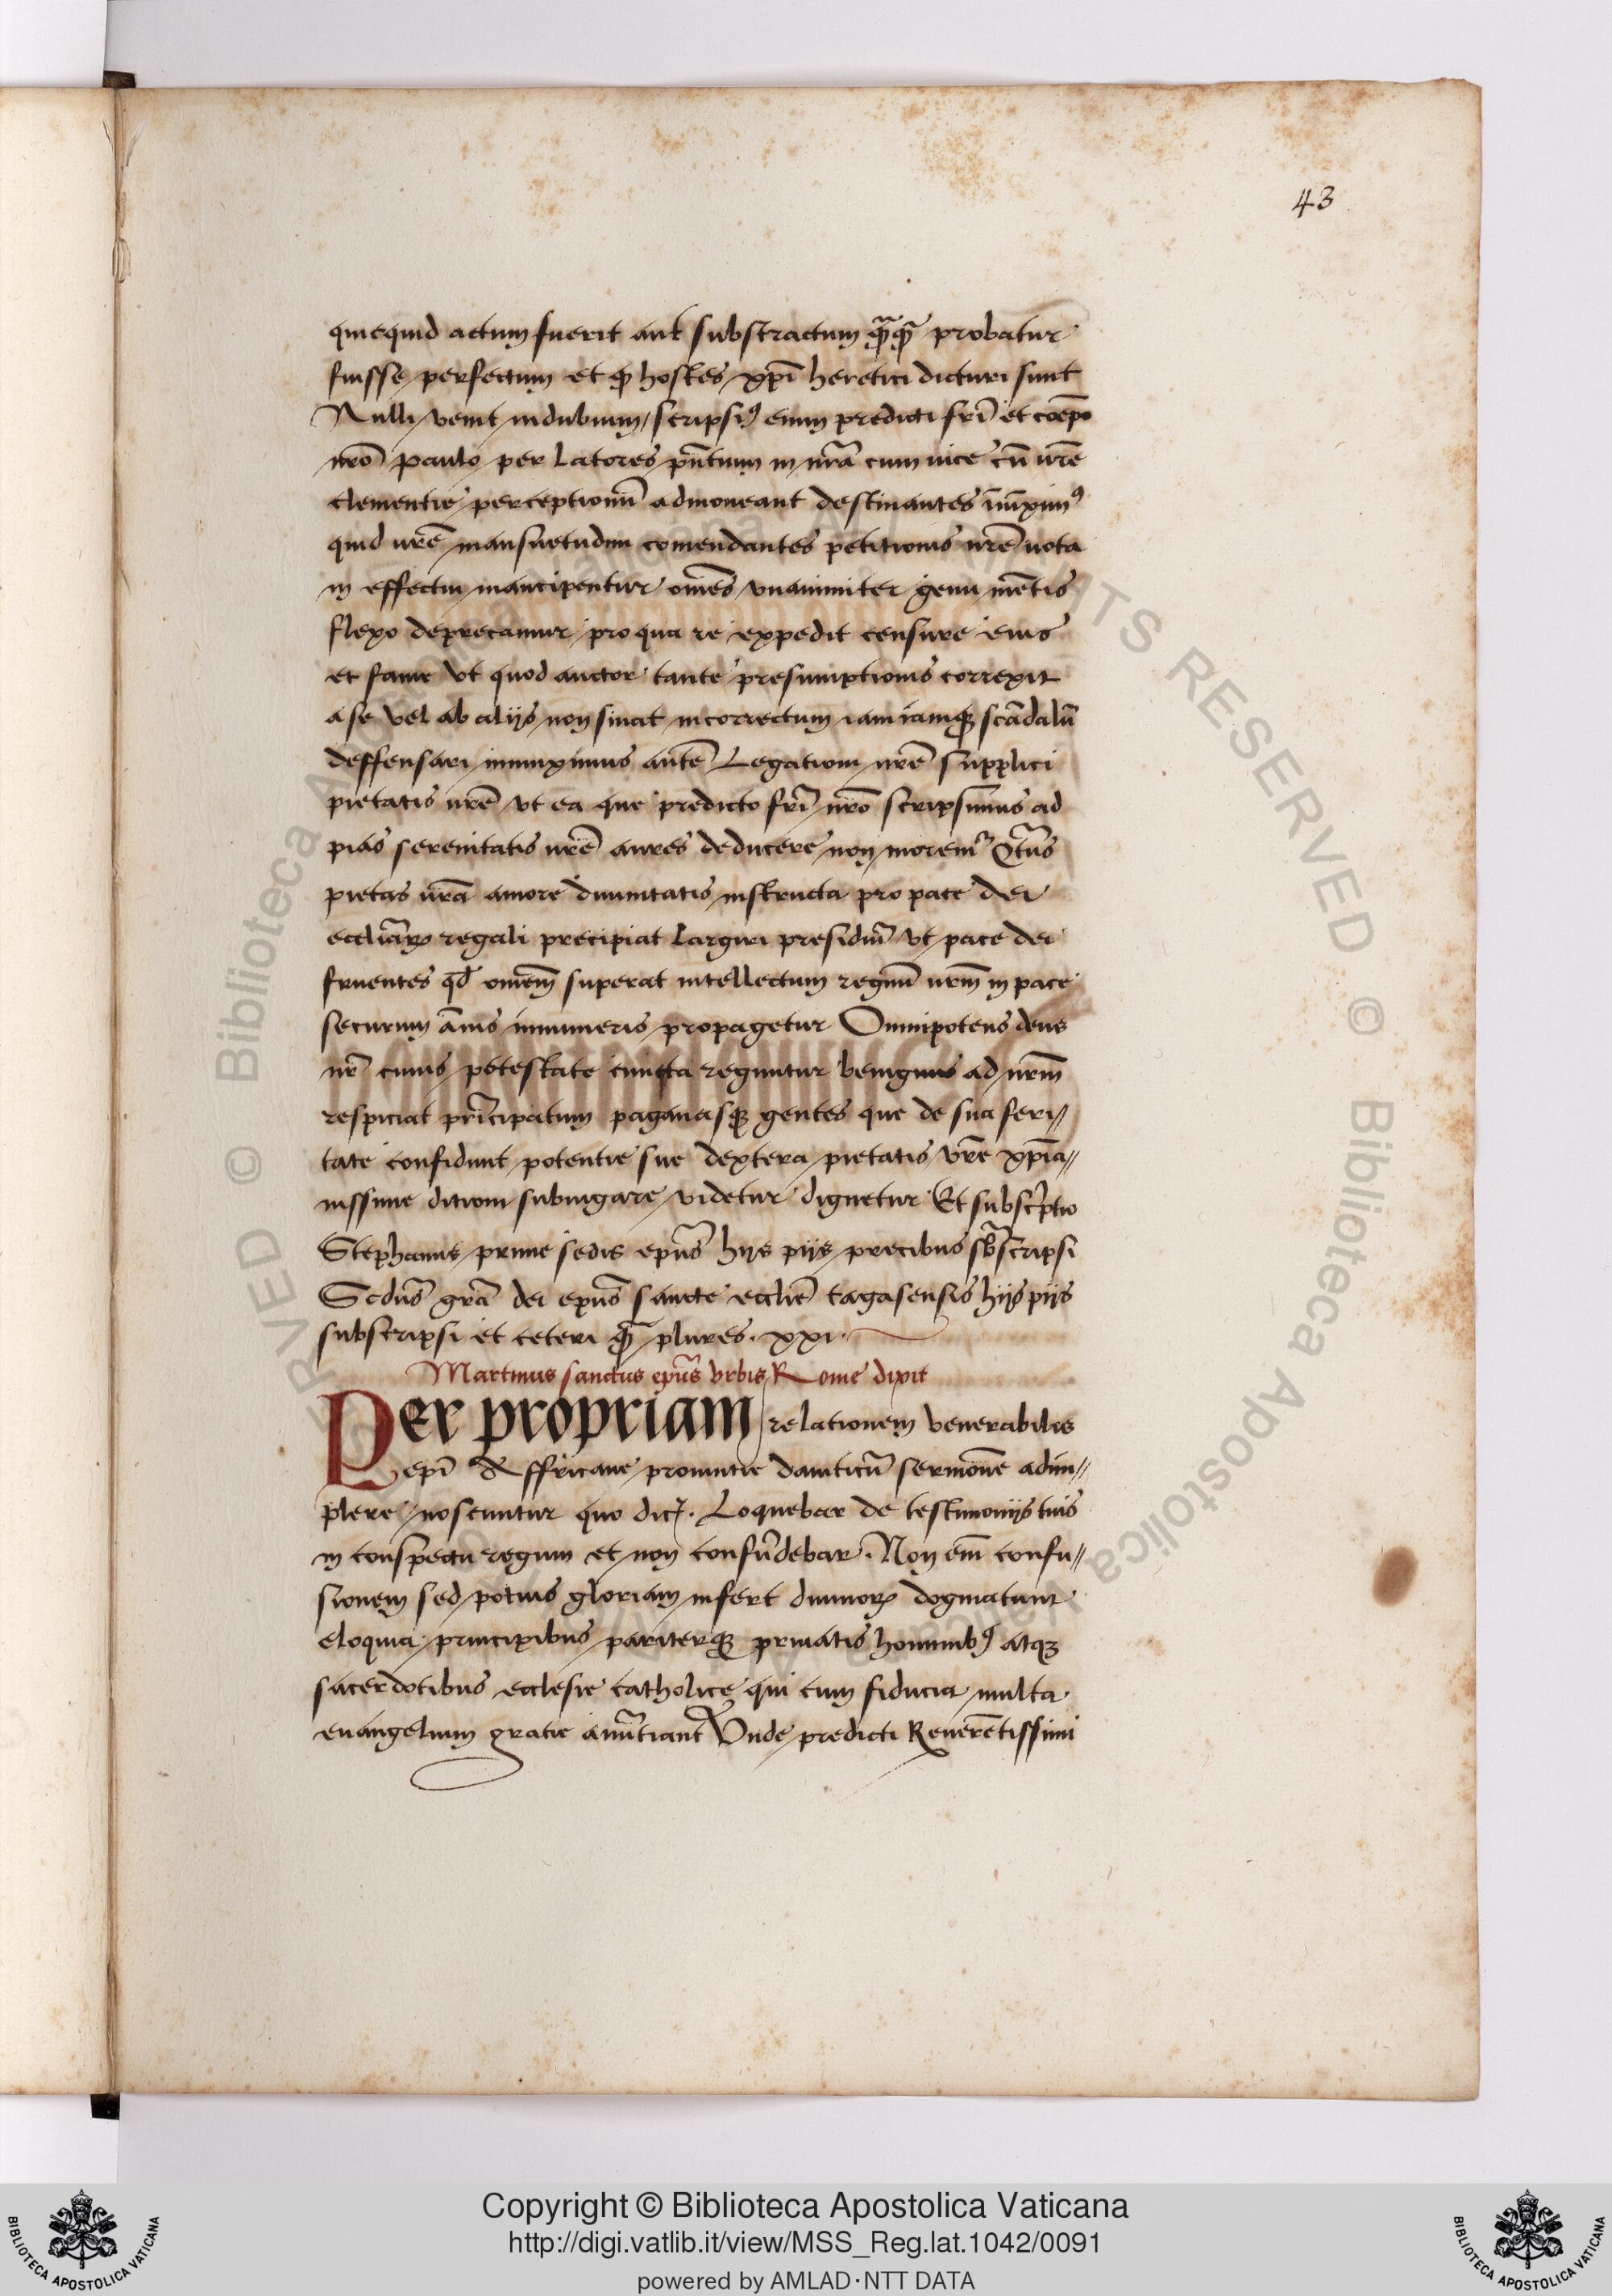 43
quicquid actum fuerit aut substractum qͣqͣ probatur
fuisse perfectum et q̄ hostes xp̄i heretici dicturi sunt
Nulli venit in dubium / scripsiꝰ enim predicti fr̄i et coep̄o
nr̄o paulo per latores pn̄tium in nr̄a cum vice cū vr̄e
clementie perceptionū admoneant destinantes iniūximꝰ
quid vr̄e mansuetudini comendantes petitionis nr̄e vota
in effectu mancipentur om̄es vnanimiter genu mētis
flexo deprecamur pro qua re expedit censure eius
et fame vt quod auctor tante presumptionis correxit
a se vel ab aliis non sinat incorrectum iam iamqꝫ scādalū
deffensari iniunximus autē Legationi nr̄e supplici
pietatis vr̄e vt ea que predicto fr̄i nr̄o scripsimus ad
pias serenitatis vr̄e aures deducere non morent᷑ Q̄tus
pietas vr̄a amore diuinitatis instructa pro pace dei
eccl̄iaꝝ regali precipiat largiri presidiū vt pace dei
fruentes qd̄ om̄em superat intellectum regnū vr̄m in pace
securum ānis innumeris propagetur Omnipotens deus
nr̄ cuius potestate cuncta reguntur benignus ad vr̄m
respiciat pr̄icipatum paganasqꝫ gentes que de sua feri//
tate confidunt potentie sue dextera pietatis vr̄e xp̄ia//
nissime dicioni subiugare videtur dignetur Et subscr̄ptio
Stephanus prime sedis ep̄us hijs pijs precibus sb̄scripsi
Sedus̄ gr̄a dei ep̄us sancte eccl̄ie tagasensis hijs pijs
subscripsi et ceteri q̄ plures . xxi .
Martinus sanctus ep̄us vrbis Rome dixit
Per propriam relationem venerabiles
ep̄i Affricane prouintie dauiticū sermonē adim//
plere noscuntur quo dicꝭ . Loquebar de testimonijs tuis
in conspectu regum et non confūdebar . Non em̄ confu//
sionem sed potius gloriam infert diuinoꝝ dogmatum
eloquia principibus pariterqꝫ priuatis hominibꝰ atqꝫ
sacerdotibus ecclesie catholice qui cum fiducia multa
euangelium gratie anūtiant Vnde predicti Reuerētissimi
Copyright © Biblioteca Apostolica Vaticana
http://digi.vatlib.it/view/MSS_Reg.lat.1042/0091
powered by AMLAD·NTT DATA